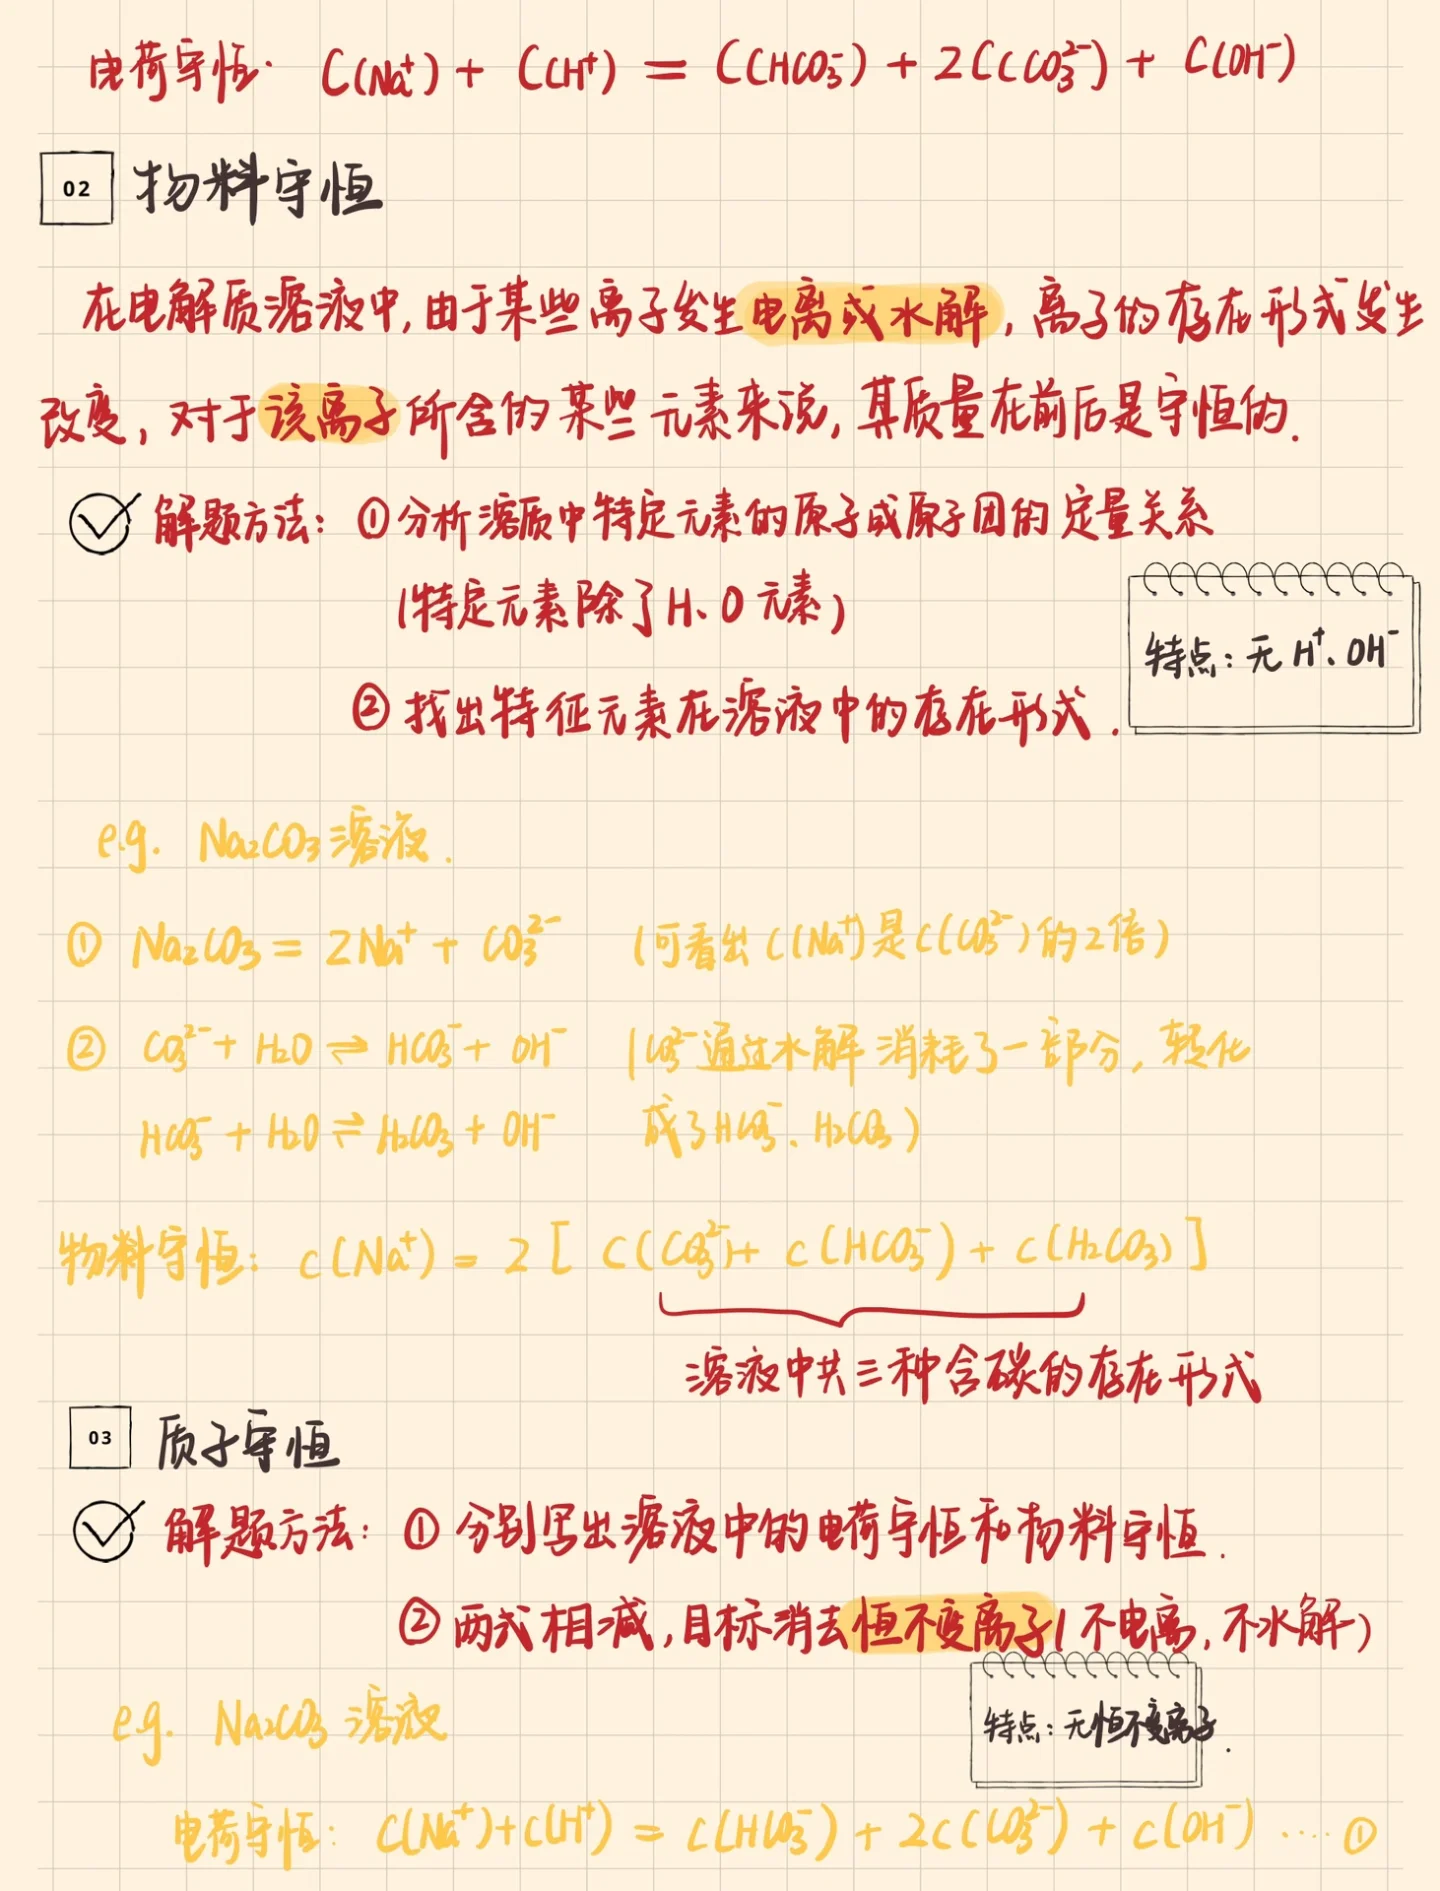 电荷守恒: C(Na⁺) + C(H⁺) = C(HCO₃⁻) + 2C(CO₃²⁻) + C(OH⁻)
02 物料守恒
在电解质溶液中,由于某些离子发生电离或水解,离子的存在形式发生
改变,对于该离子所含的某些元素来说,其质量在前后是守恒的.
解题方法: ①分析溶质中特定元素的原子或原子团的定量关系
(特定元素除了H、O元素)
特点: 无 H⁺、OH⁻
②找出特征元素在溶液中的存在形式.
e.g. Na₂CO₃溶液.
① Na₂CO₃ = 2Na⁺ + CO₃²⁻ (可看出C(Na⁺)是C(CO₃²⁻)的2倍)
② CO₃²⁻ + H₂O ⇌ HCO₃⁻ + OH⁻ (CO₃²⁻通过水解消耗了一部分,转化
HCO₃⁻ + H₂O ⇌ H₂CO₃ + OH⁻ 成了HCO₃⁻、H₂CO₃)
物料守恒: c(Na⁺) = 2[C(CO₃²⁻) + c(HCO₃⁻) + c(H₂CO₃)]
溶液中共三种含碳的存在形式
03 质子守恒
解题方法: ① 分别写出溶液中的电荷守恒和物料守恒.
② 两式相减,目标消去恒不变离子(不电离,不水解)
特点: 无恒不变离子.
e.g. Na₂CO₃ 溶液
电荷守恒: C(Na⁺)+c(H⁺) = c(HCO₃⁻) + 2c(CO₃²⁻) + c(OH⁻) ····①